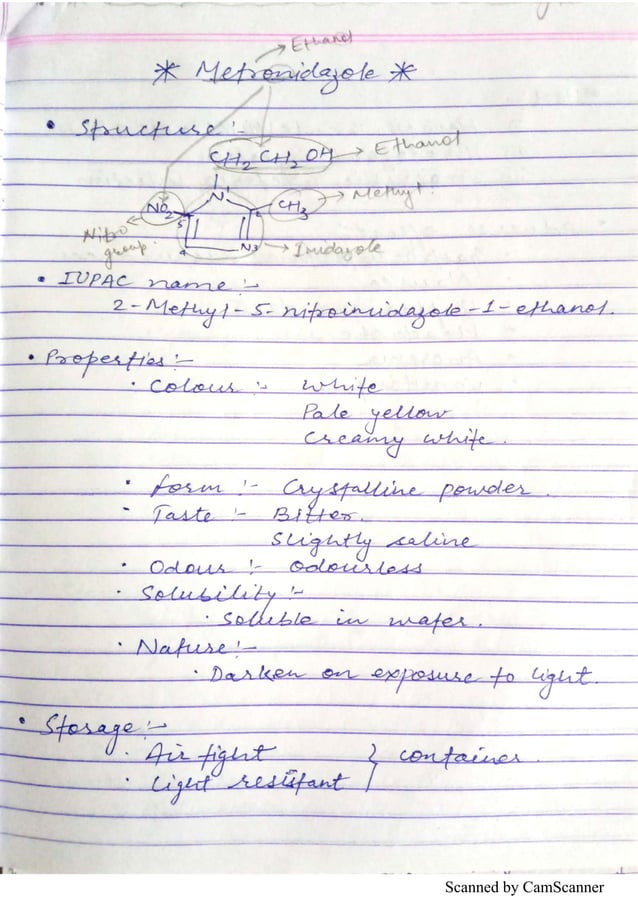 Ethanol
* Metronidazole *
• Structure :-
CH2 CH2 OH → Ethanol
N1
NO2 5 2 CH3 → Methyl
Nitro group
4 N3 → Imidazole
• IUPAC name :-
2-Methyl-5-nitroimidazole-1-ethanol.
• Properties :-
• Colour :- White
Pale yellow
Creamy white.
• Form :- Crystalline powder.
• Taste :- Bitter.
Slightly saline
• Odour :- Odourless
• Solubility :-
• Soluble in water.
• Nature :-
• Darken on exposure to light.
• Storage :-
• Air tight } container.
• Light resistant
Scanned by CamScanner